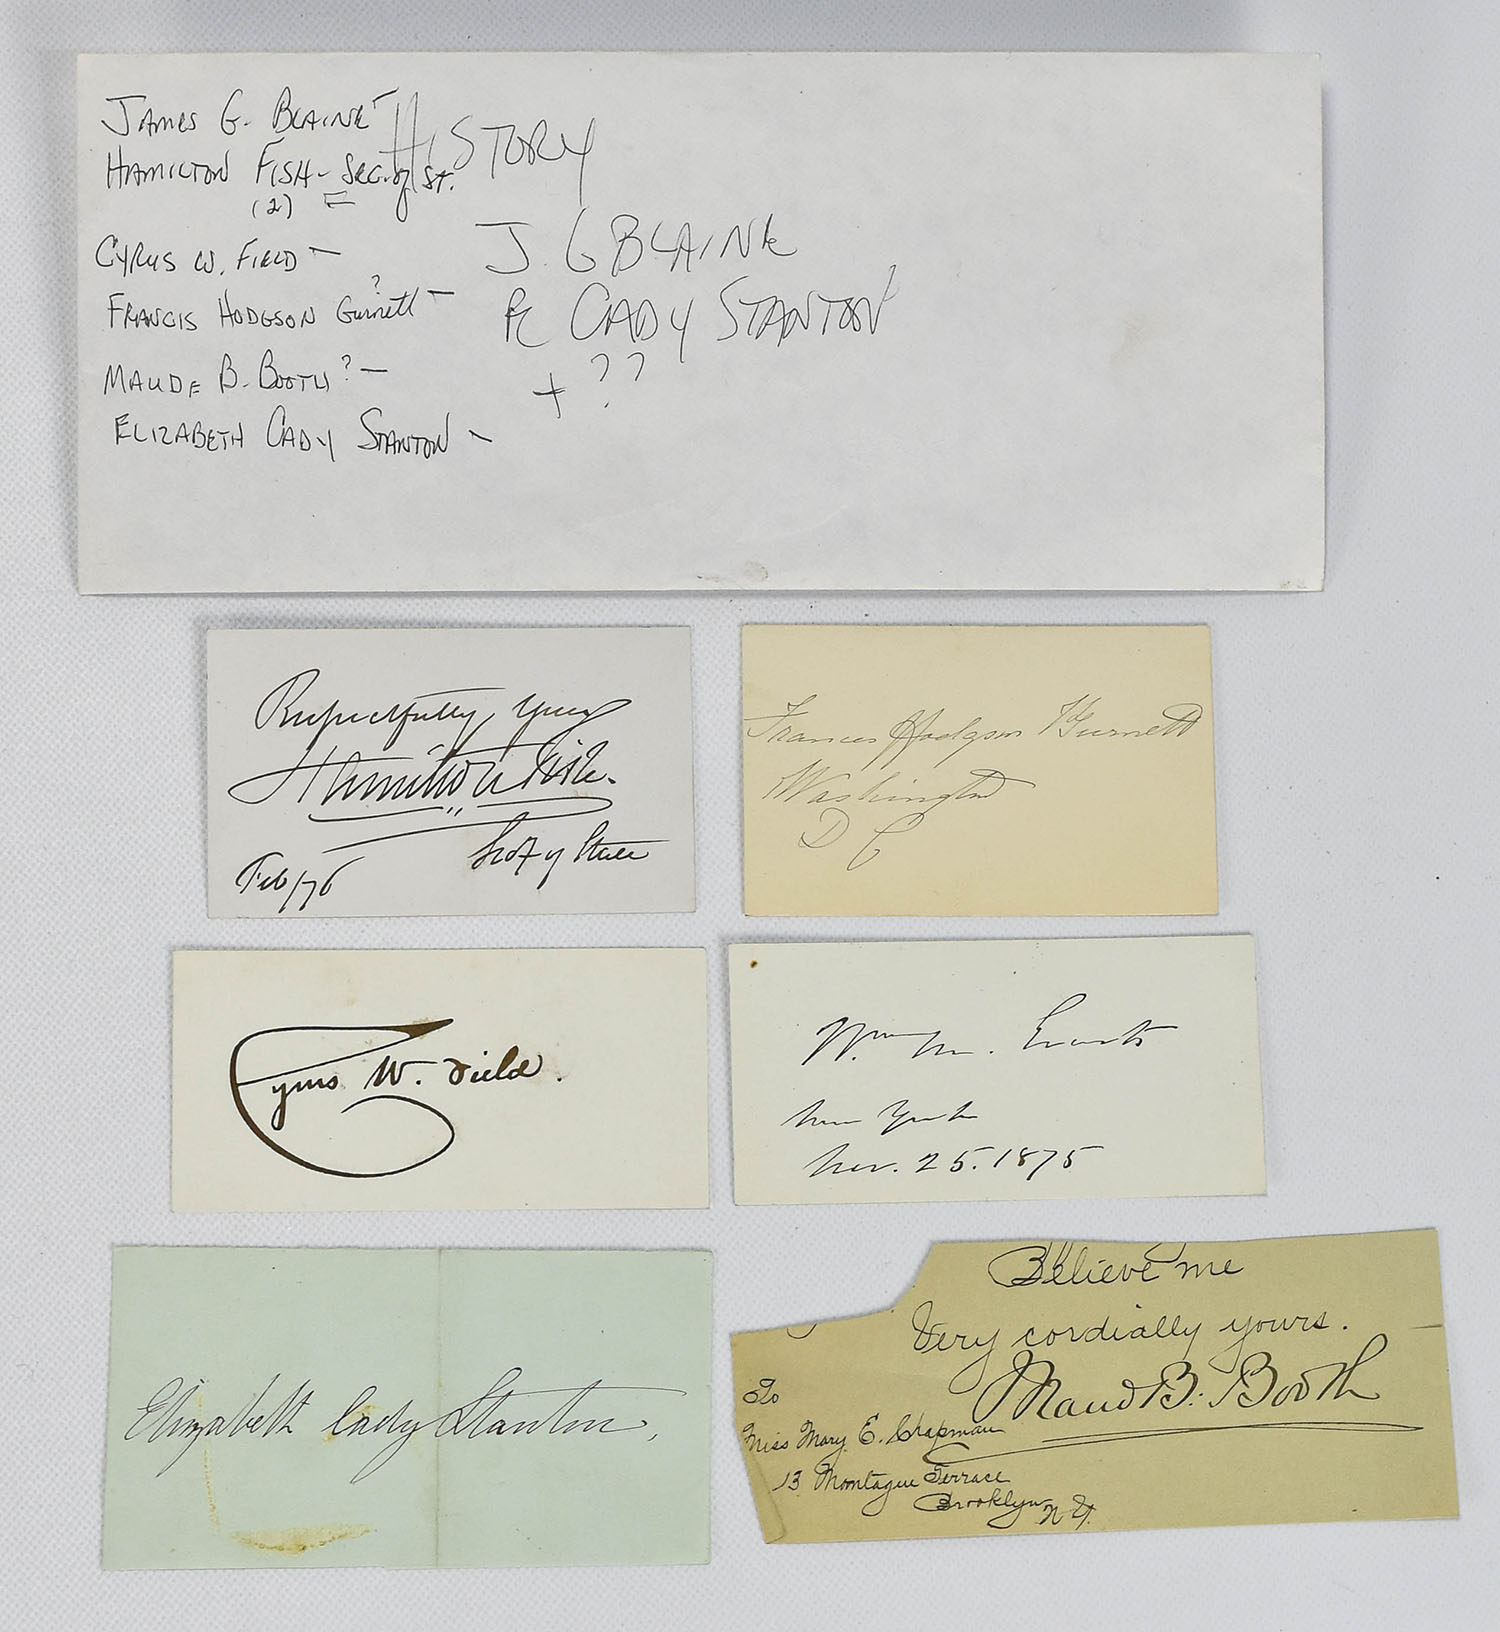 JAMES G. BLAINE -
HISTORY
HAMILTON FISH - SEC. of ST.
(2)
CYRUS W. FIELD -
J. G BLAINE
?
FRANCIS HODGSON Gurnett -
E CADY STANTON
MAUDE B. BOOTH? -
+ ??
ELIZABETH CADY STANTON -
Respectfully yours
Hamilton Fish.
Secty of State
Feb/76
Frances Hodgson Burnett
Washington
D C
Cyrus W. Field.
Wm M. Evarts
New York
Nov. 25. 1875
Elizabeth Cady Stanton.
Believe me
Very cordially yours.
Maud B. Booth
To
Miss Mary E. Chapman
13 Montague Terrace
Brooklyn
N.Y.